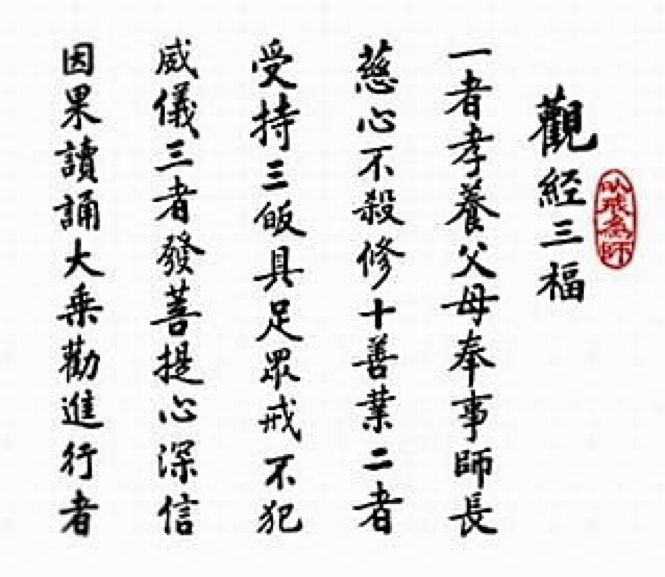 以戒為師
觀經三福
一者孝養父母奉事師長
慈心不殺修十善業二者
受持三皈具足眾戒不犯
威儀三者發菩提心深信
因果讀誦大乘勸進行者